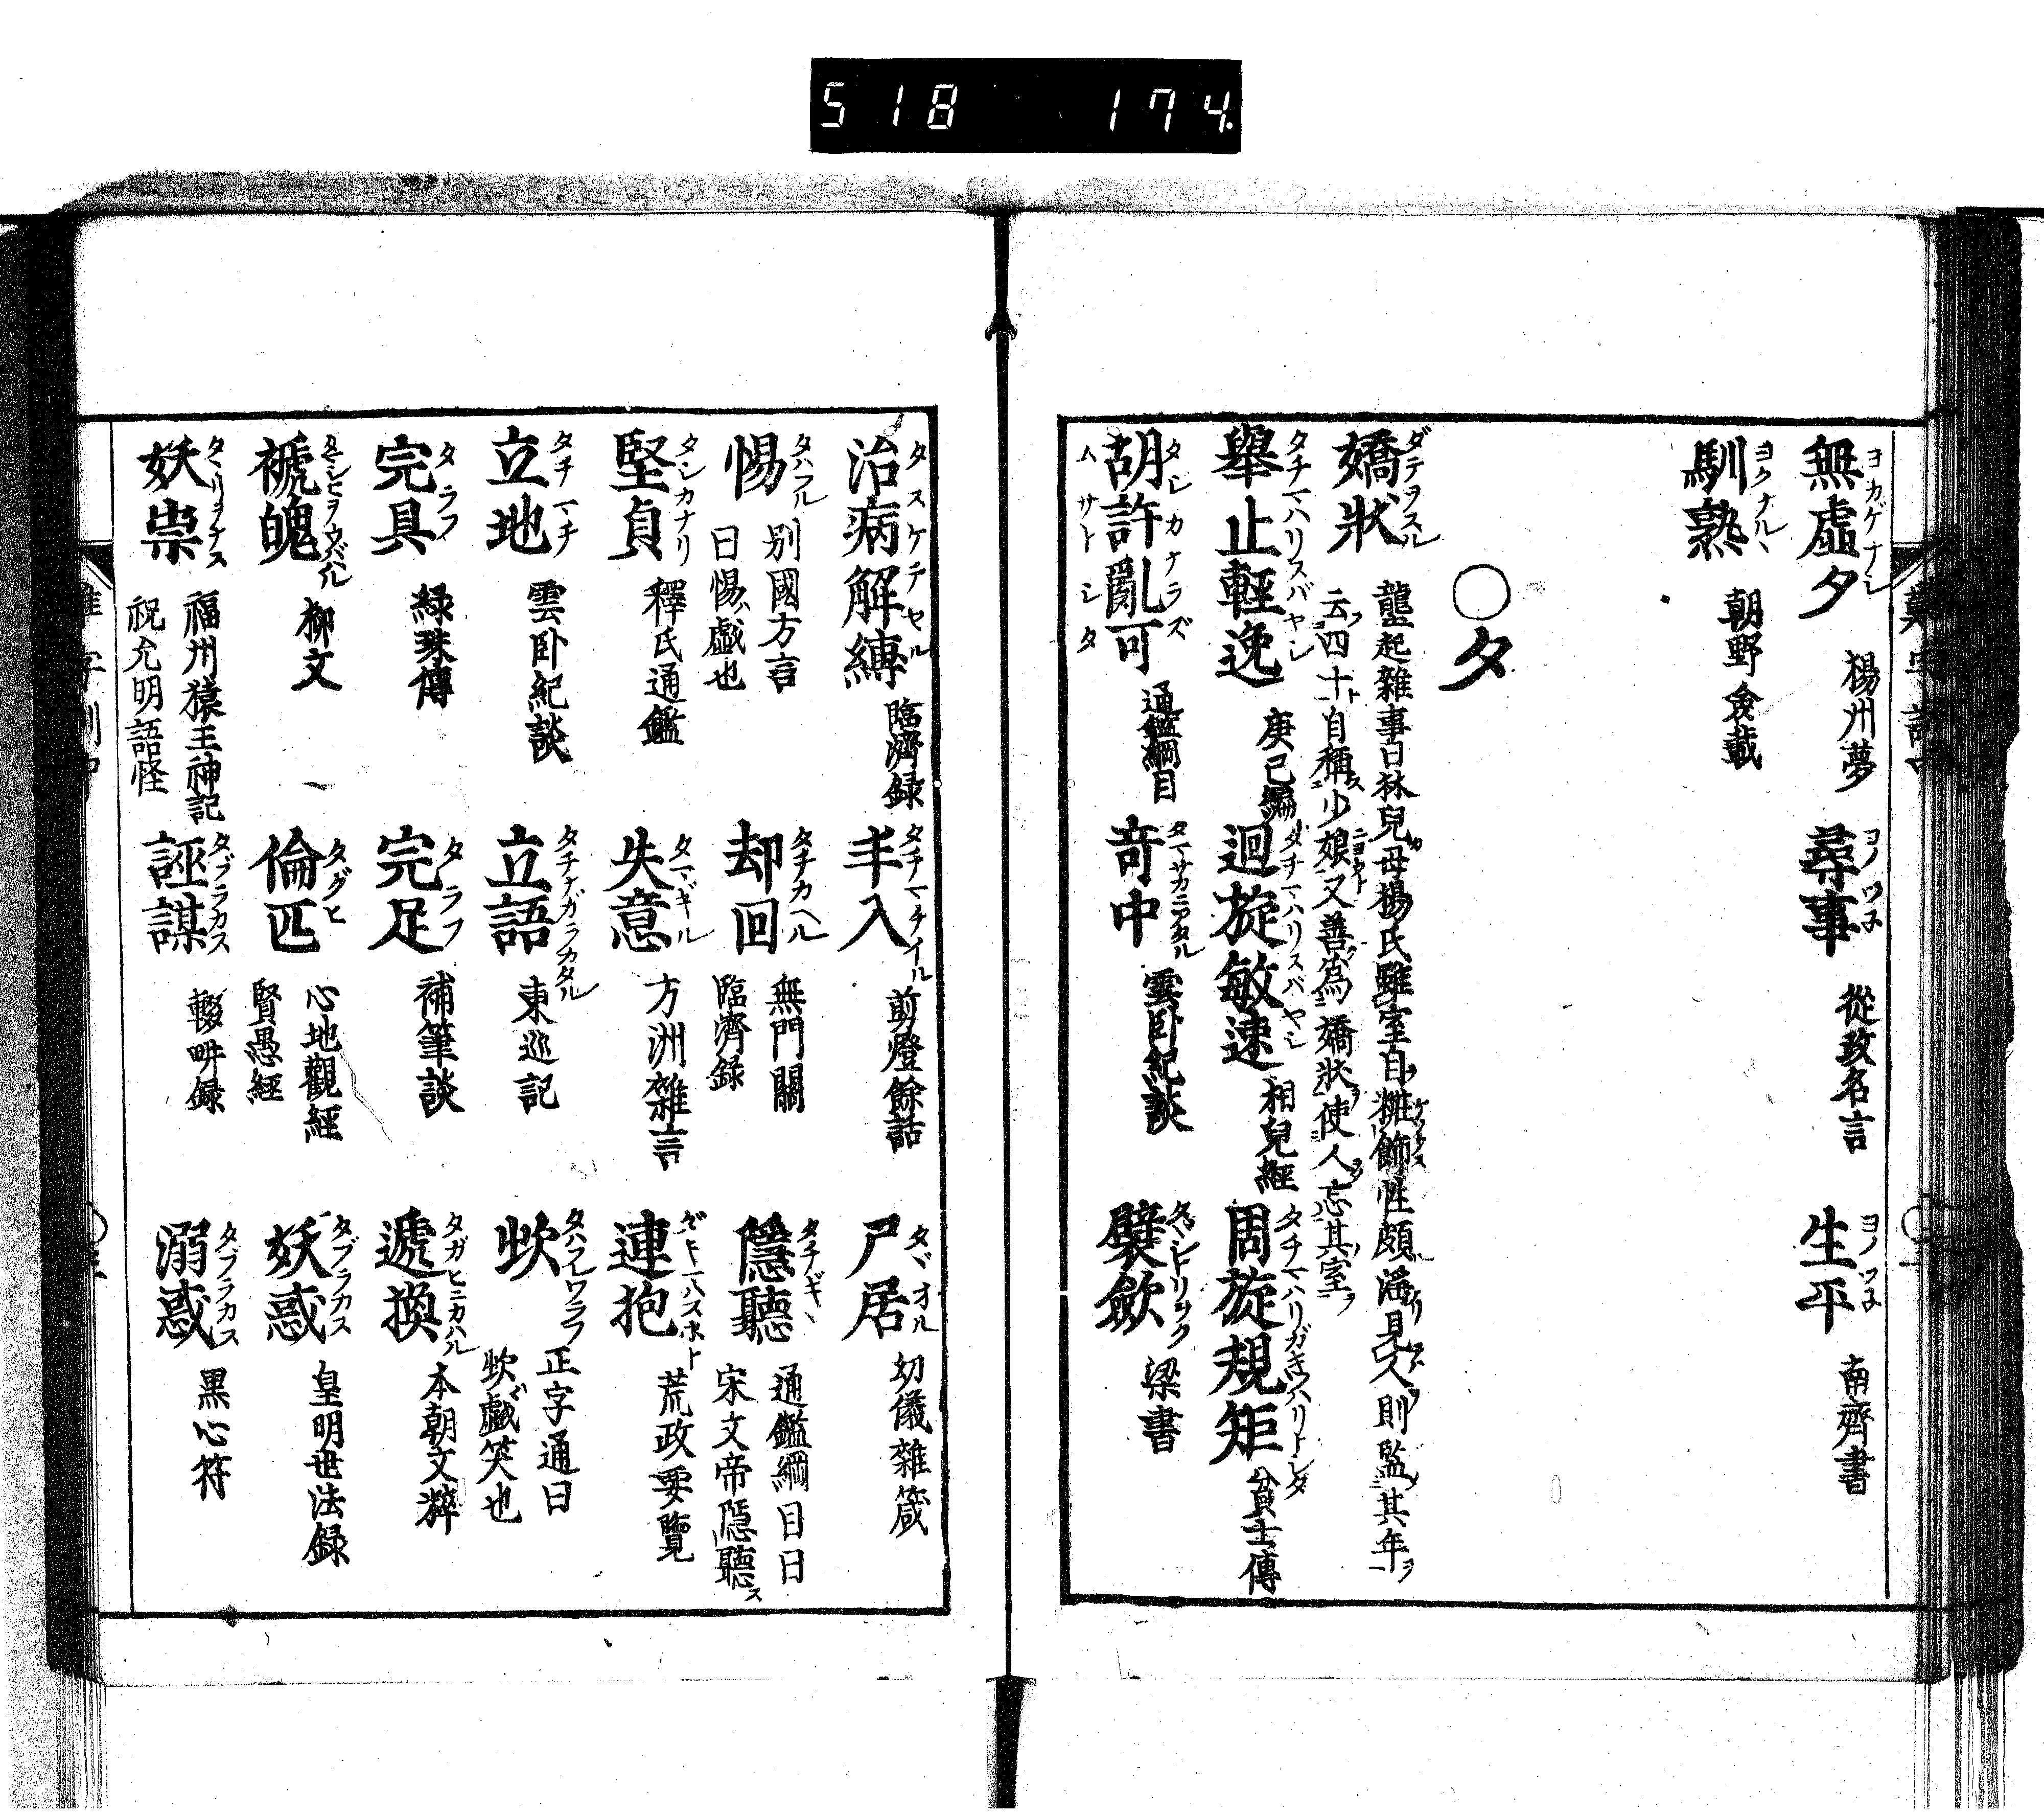 518 174
無虚夕 ヨカゲナシ 楊州夢 尋事 ヨノツネ 從政名言 生平 ヨノツネ 南齊書
馴熟 ヨクナル 朝野僉載
〇タ
嬌狀 ダテヲスル 龍起雜事曰林兒母楊氏雖室自糚飾性頗淫見人則監其年
云四十自稱少娘又善為嬌狀使人忘其室
舉止輕逸 タチマハリスバヤシ 庚己編 迴旋敏速 タチマハリスバヤシ 相兒經 周旋規矩 タチマハリガキツハリトシタ 貧士傳
胡許亂可 タシカナラズ ムサトシタ 通鑑綱目 奇中 タマサカニアタル 雲卧紀談 襞歛 梁書
治病解縛 タスケテヤル 臨濟録 手入 タチマチイル 剪燈餘話 尸居 タヾオル 幼儀雜箴
惕 タハフル 别國方言
曰惕戯也 却回 タチカヘル 無門關
臨濟録 隱聽 タチギヽ 通鑑綱目曰
宋文帝隱聽ス
堅貞 タシカナリ 釋氏通鑑 失意 タマギル 方洲雜言 連抱 荒政要覽
立地 タチマチ 雲卧紀談 立語 タチナガラカタル 東巡記 㰞 タハフレワラフ 正字通曰
㰞戯笑也
完具 タラフ 緑珠傳 完足 タラフ 補筆談 遞換 タガヒニカハル 本朝文粹
褫魄 タマシヒヲウバハル 柳文 倫匹 タグヒ 心地觀經
賢愚經 妖惑 タブラカス 皇明世法録
妖祟 タヽリヲナス 福州猿王神記
祝允明語怪 誣謀 タブラカス 輟畊録 溺惑 タブラカス 黒心符